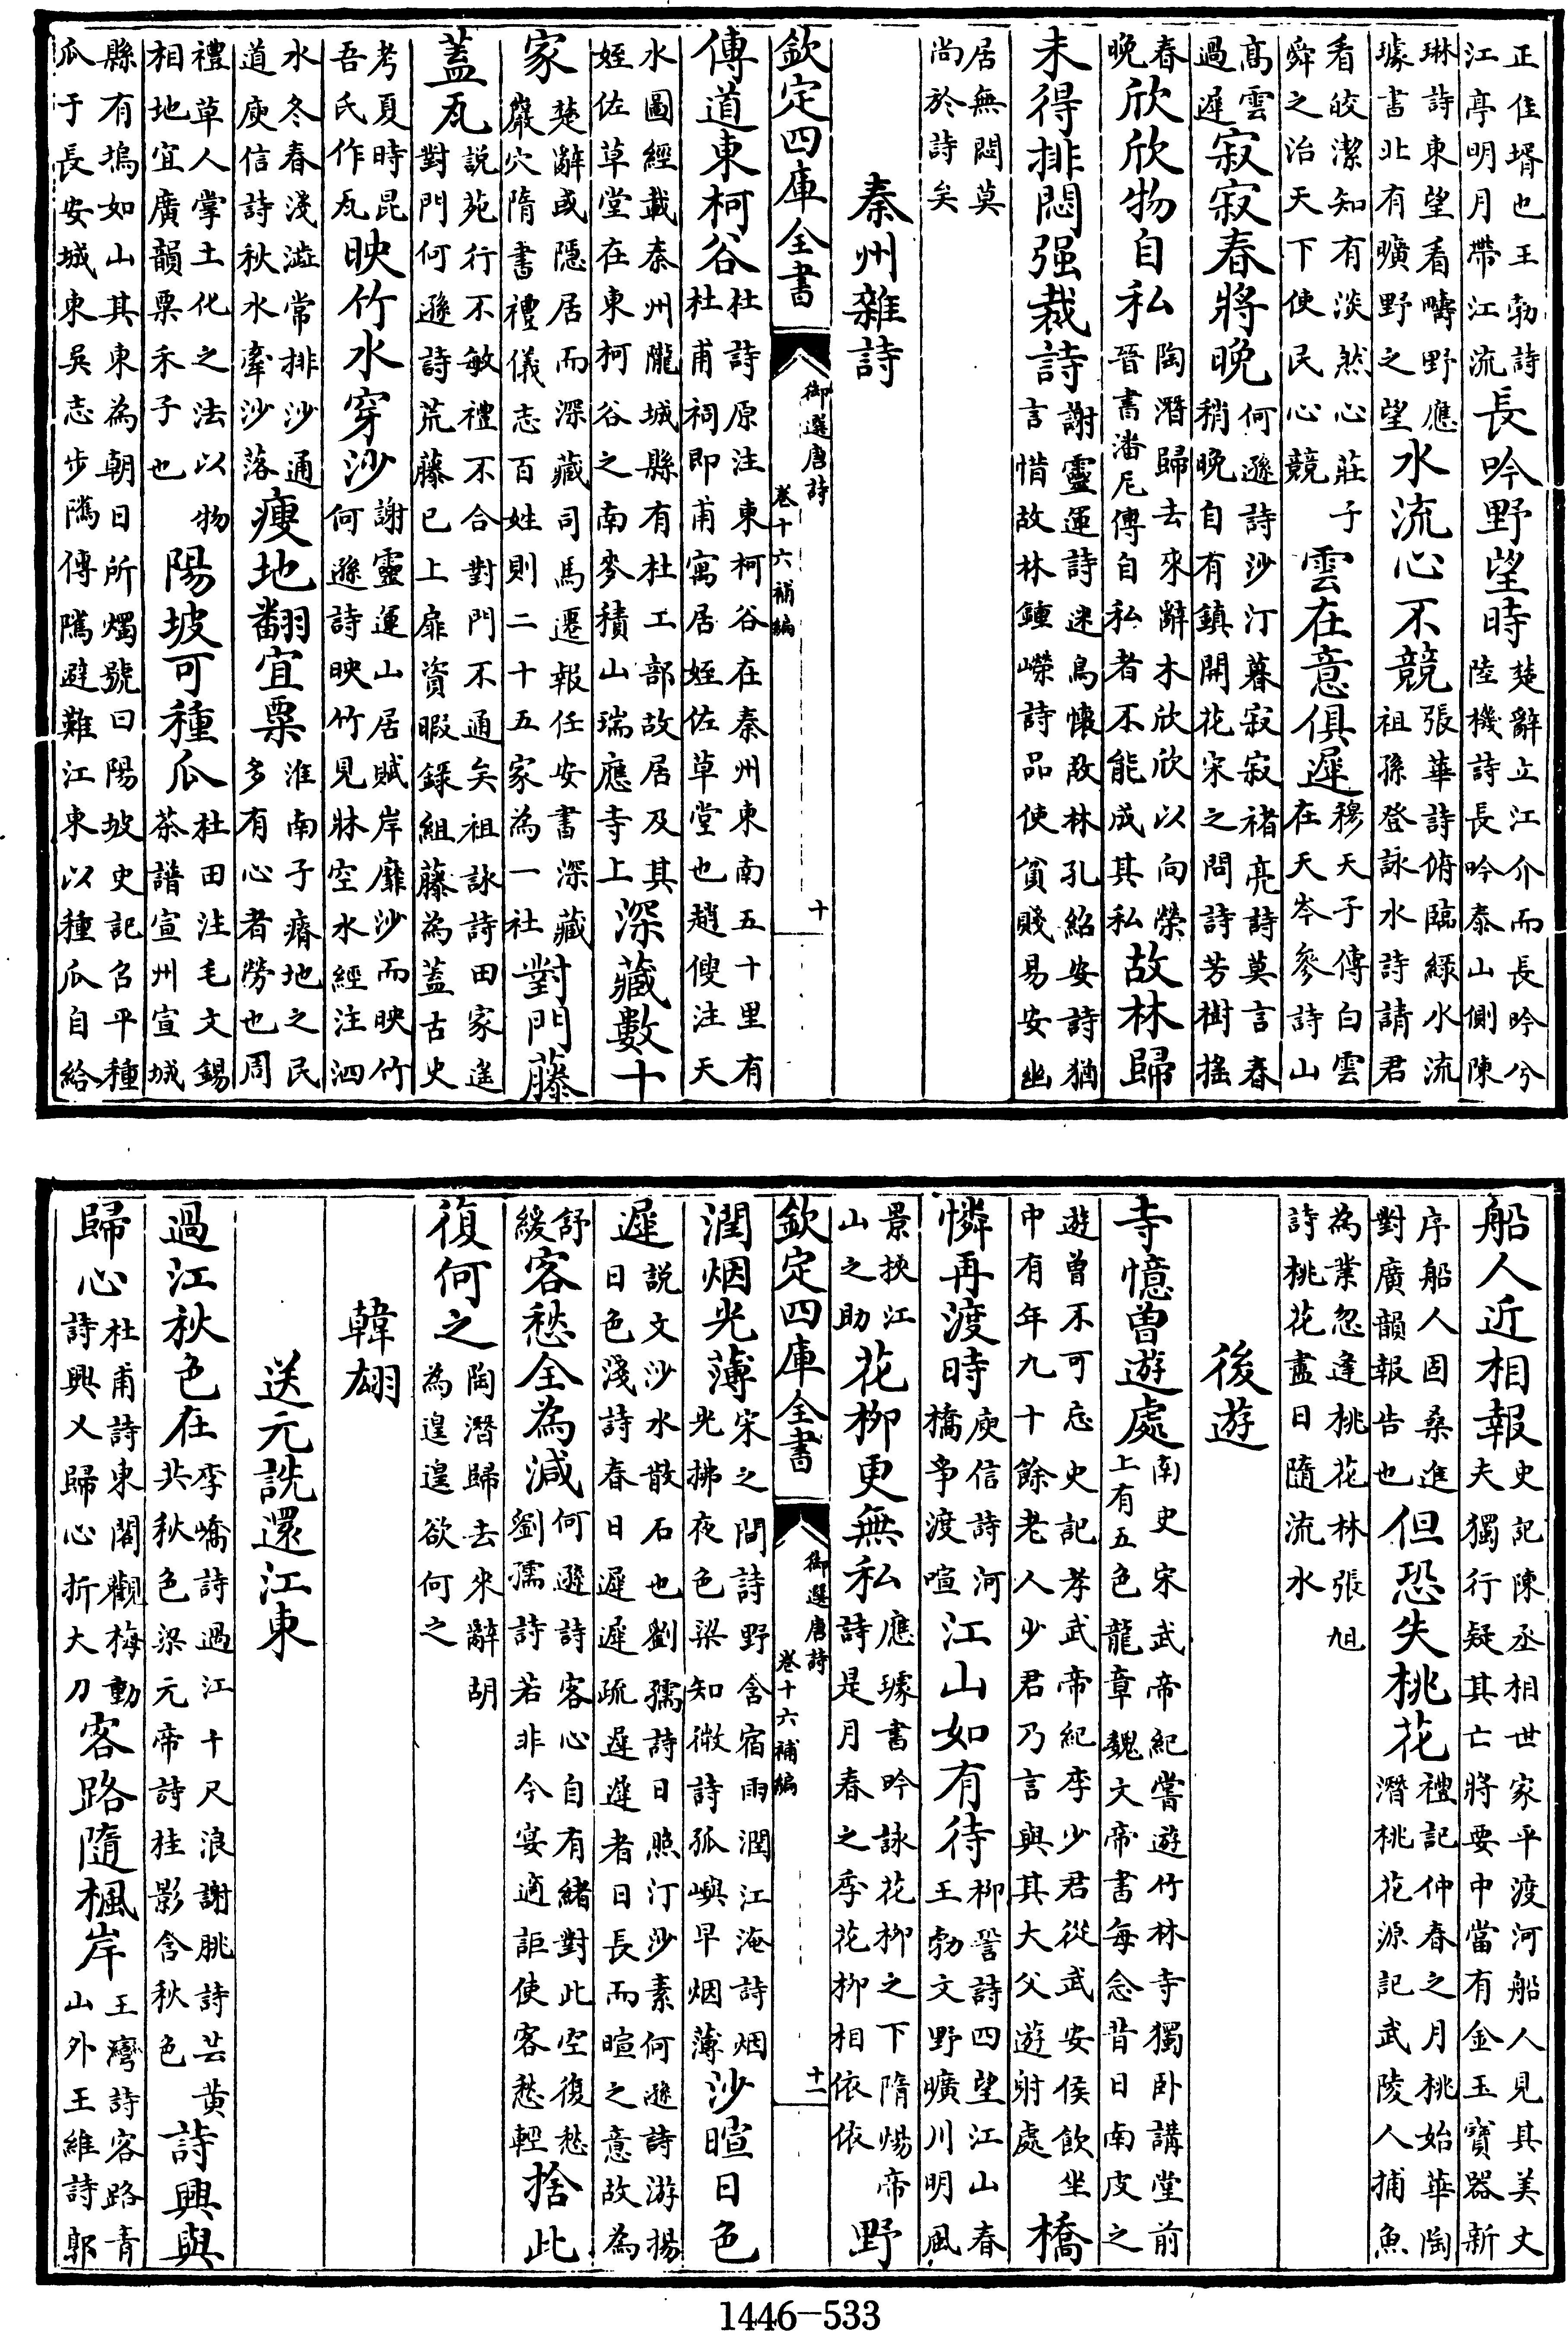 正佳壻也王勃詩江亭明月帶江流長吟野望時楚辭立江介而長吟兮陸機詩長吟泰山側陳
琳詩東望看疇野應璩書北有曠野之望水流心不競張華詩俯臨綠水流祖孫登詠水詩請君
看皎潔知有淡然心莊子舜之治天下使民心競雲在意俱遲穆天子傳白雲在天岑參詩山
高雲過遲寂寂春將晚何遜詩沙汀暮寂寂褚亮詩莫言春稍晚自有鎮開花宋之問詩芳樹搖
春晚欣欣物自私陶潛歸去來辭木欣欣以向榮晉書潘尼傳自私者不能成其私故林歸
未得排悶强裁詩謝靈運詩迷鳥懷故林孔紹安詩猶言惜故林鍾嶸詩品使貧賤易安幽
居無悶莫尚於詩矣
秦州雜詩
欽定四庫全書 御選唐詩 卷十六補編 十
傳道東柯谷杜詩原注東柯谷在秦州東南五十里有杜甫祠即甫寓居姪佐草堂也趙傁注天
水圖經載秦州隴城縣有杜工部故居及其姪佐草堂在東柯谷之南麥積山瑞應寺上深藏數十
家楚辭或隱居而深藏司馬遷報任安書深藏巖穴隋書禮儀志百姓則二十五家為一社對門藤
蓋瓦說苑行不敏禮不合對門不通矣祖詠詩田家遥對門何遜詩荒藤已上扉資暇錄組藤為蓋古史
考夏時昆吾氏作瓦映竹水穿沙謝靈運山居賦岸靡沙而映竹何遜詩映竹見牀空水經注泗
水冬春淺澁常排沙通道庾信詩秋水牽沙落瘦地翻宜粟淮南子瘠地之民多有心者勞也周
禮草人掌土化之法以物相地宜廣韻粟禾子也陽坡可種瓜杜田注毛文錫茶譜宣州宣城
縣有塢如山其東為朝日所燭號曰陽坡史記召平種瓜于長安城東吳志步隲傳隲避難江東以種瓜自給
船人近相報史記陳丞相世家平渡河船人見其美丈夫獨行疑其亡將要中當有金玉寶器新
序船人固桑進對廣韻報告也但恐失桃花禮記仲春之月桃始華陶潛桃花源記武陵人捕魚
為業忽逢桃花林張旭詩桃花盡日隨流水
後遊
寺憶曾遊處南史宋武帝紀嘗遊竹林寺獨卧講堂前上有五色龍章魏文帝書每念昔日南皮之
遊曾不可忘史記孝武帝紀李少君從武安侯飲坐中有年九十餘老人少君乃言與其大父遊射處橋
憐再渡時庾信詩河橋爭渡喧江山如有待柳詧詩四望江山春王勃文野曠川明風
景挾江山之助花柳更無私應璩書吟詠花柳之下隋煬帝詩是月春之季花柳相依依野
欽定四庫全書 御選唐詩 卷十六補編 十一
潤烟光薄宋之問詩野含宿雨潤江淹詩烟光拂夜色梁知微詩孤嶼早烟薄沙暄日色
遲說文沙水散石也劉孺詩日照汀沙素何遜詩游揚日色淺詩春日遲遲疏遲遲者日長而暄之意故為
舒緩客愁全為減何遜詩客心自有緒對此空復愁劉孺詩若非今宴適詎使客愁輕捨此
復何之陶潛歸去來辭胡為遑遑欲何之
韓翃
送元詵還江東
過江秋色在李嶠詩過江十尺浪謝朓詩芸黄共秋色梁元帝詩桂影含秋色詩興與
歸心杜甫詩東閣觀梅動詩興乂歸心折大刀客路隨楓岸王灣詩客路青山外王維詩郭
1446-533